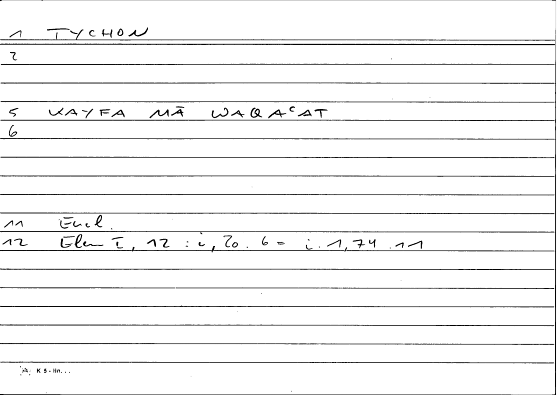 1 TYCHON
2
5 KAYFA MĀ WAQAʿAT
6
11 Eucl.
12 Elem I, 12 : i, 20. 6 = i. 1, 74. 11
K 5 -